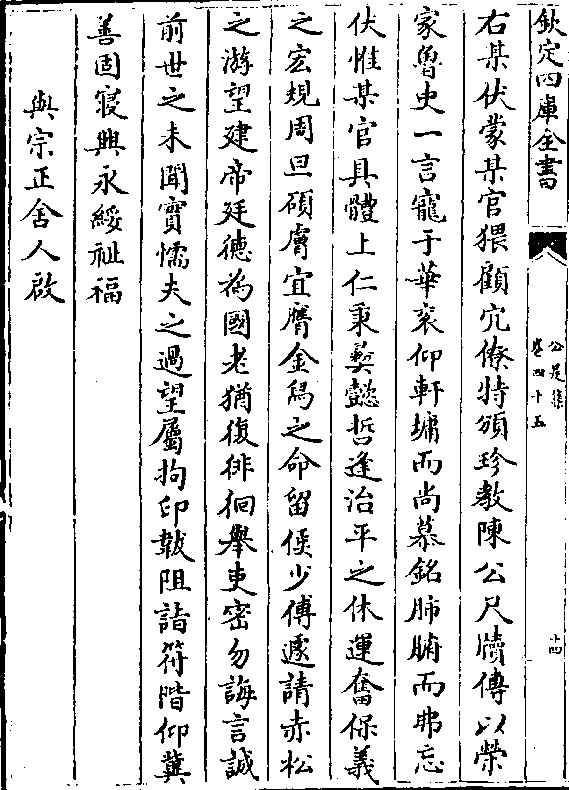 欽定四庫全書
公是集
卷四十五
十四
右某伏蒙某官猥顧宂僚特頒珍教陳公尺牘傳以榮
家魯史一言寵于華衮仰軒墉而尚慕銘肺腑而弗忘
伏惟某官具體上仁秉彛懿哲逢治平之休運奮保義
之宏規周旦碩膚宜膺金舄之命留侯少傅遽請赤松
之游望建帝廷德為國老猶復徘徊舉吏密勿誨言誠
前世之未聞實懦夫之過望屬拘印韍阻詣符階仰冀
善固寢興永綏祉福
與宗正舍人啟